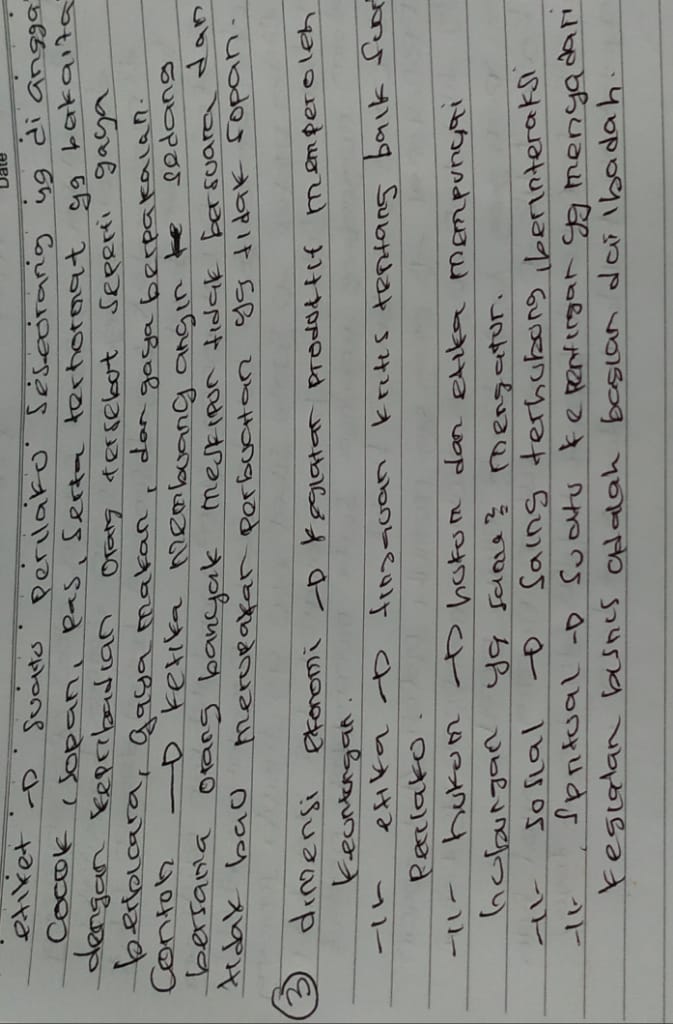 Date
etiket → suatu perilaku seseorang yg di angga
Cocok, sopan, pas, serta terhormat yg bekaita
dengan kepribadian orang tersebut seperti gaya
berbicara, gaya makan, dan gaya berpakaian.
Contoh → ketika membuang angin ke sedang
bersama orang banyak meskipun tidak bersuara dan
tidak bau merupakan perbuatan yg tidak sopan.
③ dimensi ekonomi → kegiatan produktif memperoleh
keuntungan.
-11- etika → tinjauan kritis tentang baik
Perilaku.
-11- hukum → hukum dan etika mempunyai
hubungan yg saling2 mengatur.
-11- sosial → Saling terhubung, berinteraksi.
-11- Spritual → Suatu kepentingan yg menyadari
kegiatan bisnis adalah bagian dari ibadah.